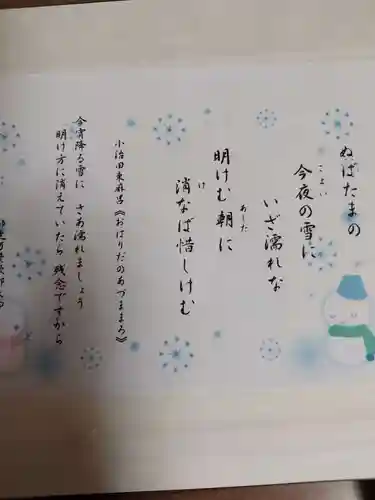 ぬばたまの
今夜の雪に
こよい
いざ濡れな
明けむ朝に
あした
消なば惜しけむ
け
小治田東麻呂《おはりだのあづままろ》
今宵降る雪に さあ濡れましょう
明け方に消えていたら 残念ですから